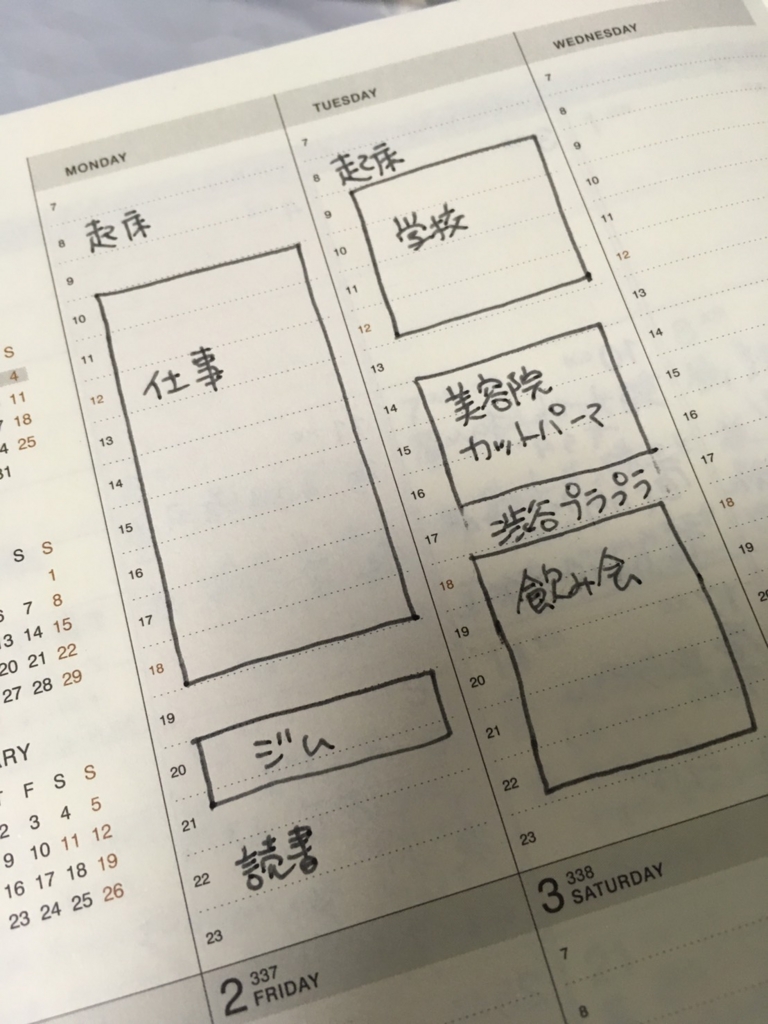 MONDAY
7
8 起床
9
10
11
12 仕事
13
14
15
16
17
18
19
20 ジム
21
22 読書
23
TUESDAY
7
8 起床
9
10 学校
11
12
13
14 美容院
15 カットパーマ
16
17 渋谷プラプラ
18 飲み会
19
20
21
22
23
WEDNESDAY
7
8
9
10
11
12
13
14
15
16
17
18
19
S
4
11
18
4 25
31
S S
1
6 7 8
13 14 15
20 21 22
27 28 29
F S S
2 3 4 5
9 10 11 12
16 17 18 19
23 24 25 26
2 337 FRIDAY
3 338 SATURDAY
7
8